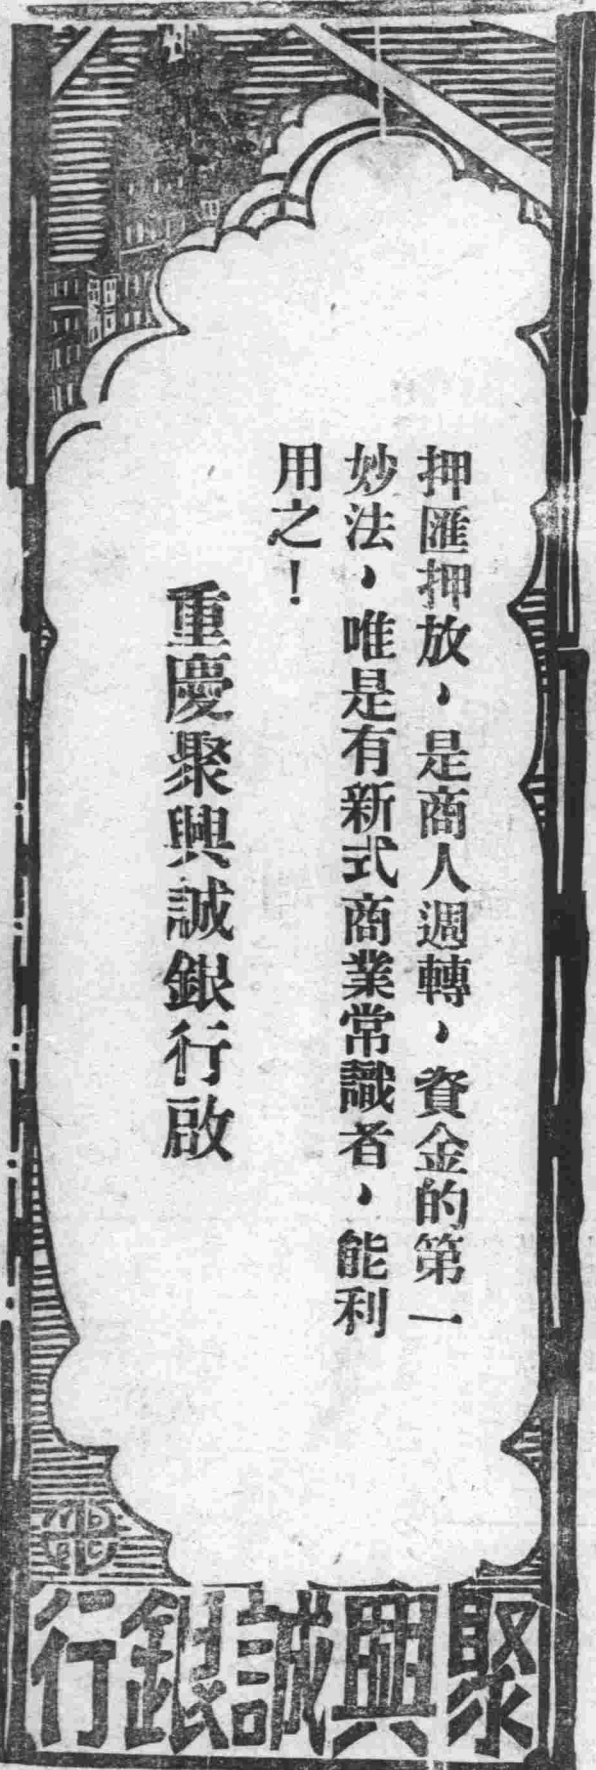 押匯押放，是商人週轉，資金的第一
妙法，唯是有新式商業常識者，能利
用之！
重慶聚興誠銀行啟
聚興誠銀行